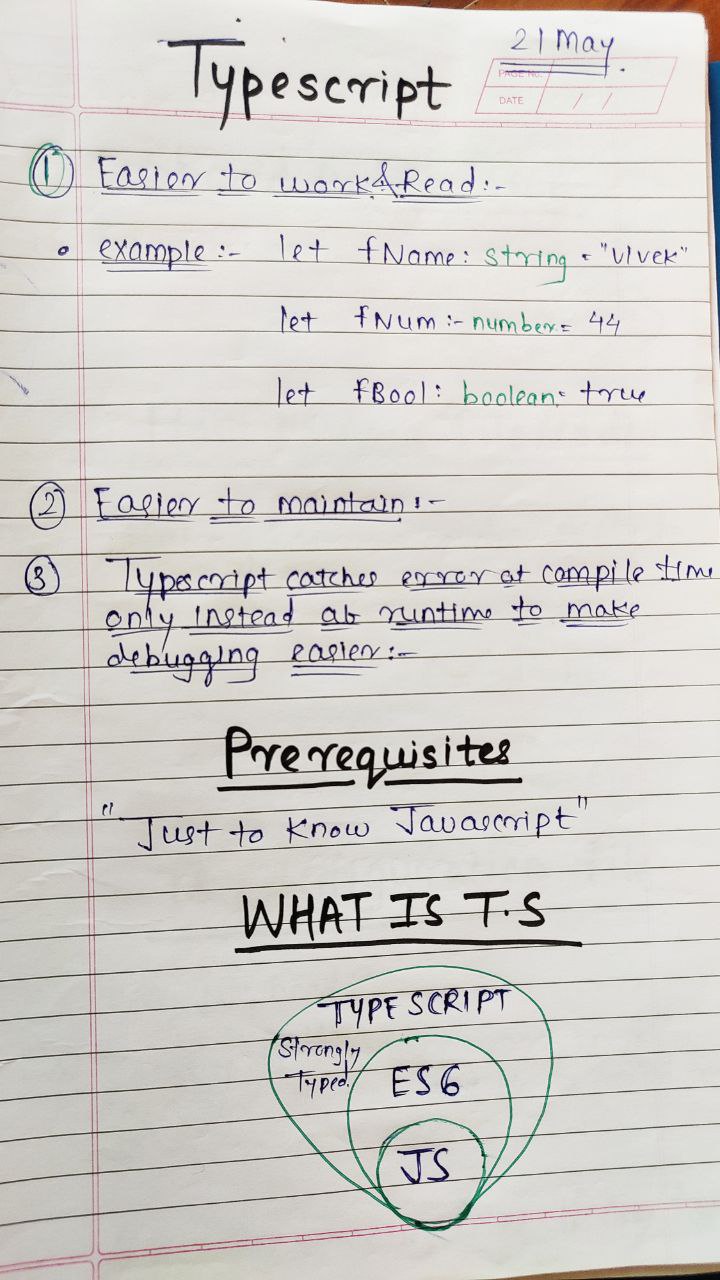 21 May.
PAGE No.
DATE / /
Typescript
① Easier to work & Read :-
• example :- let fName: string = "Vivek"
let fNum :- number = 44
let fBool: boolean = true
② Easier to maintain :-
③ Typescript catches error at compile time
only instead at runtime to make
debugging easier :-
Prerequisites
"Just to Know Javascript"
WHAT IS T.S
TYPE SCRIPT
Strongly
Typed.
ES6
JS